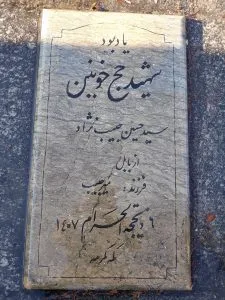 یادبود
شهید حج خونین
سید حسین حبیب نژاد
از بابل
فرزند: سید حبیب
۶ ذیحجة الحرام ۱۴۰۷
مکه مکرمه